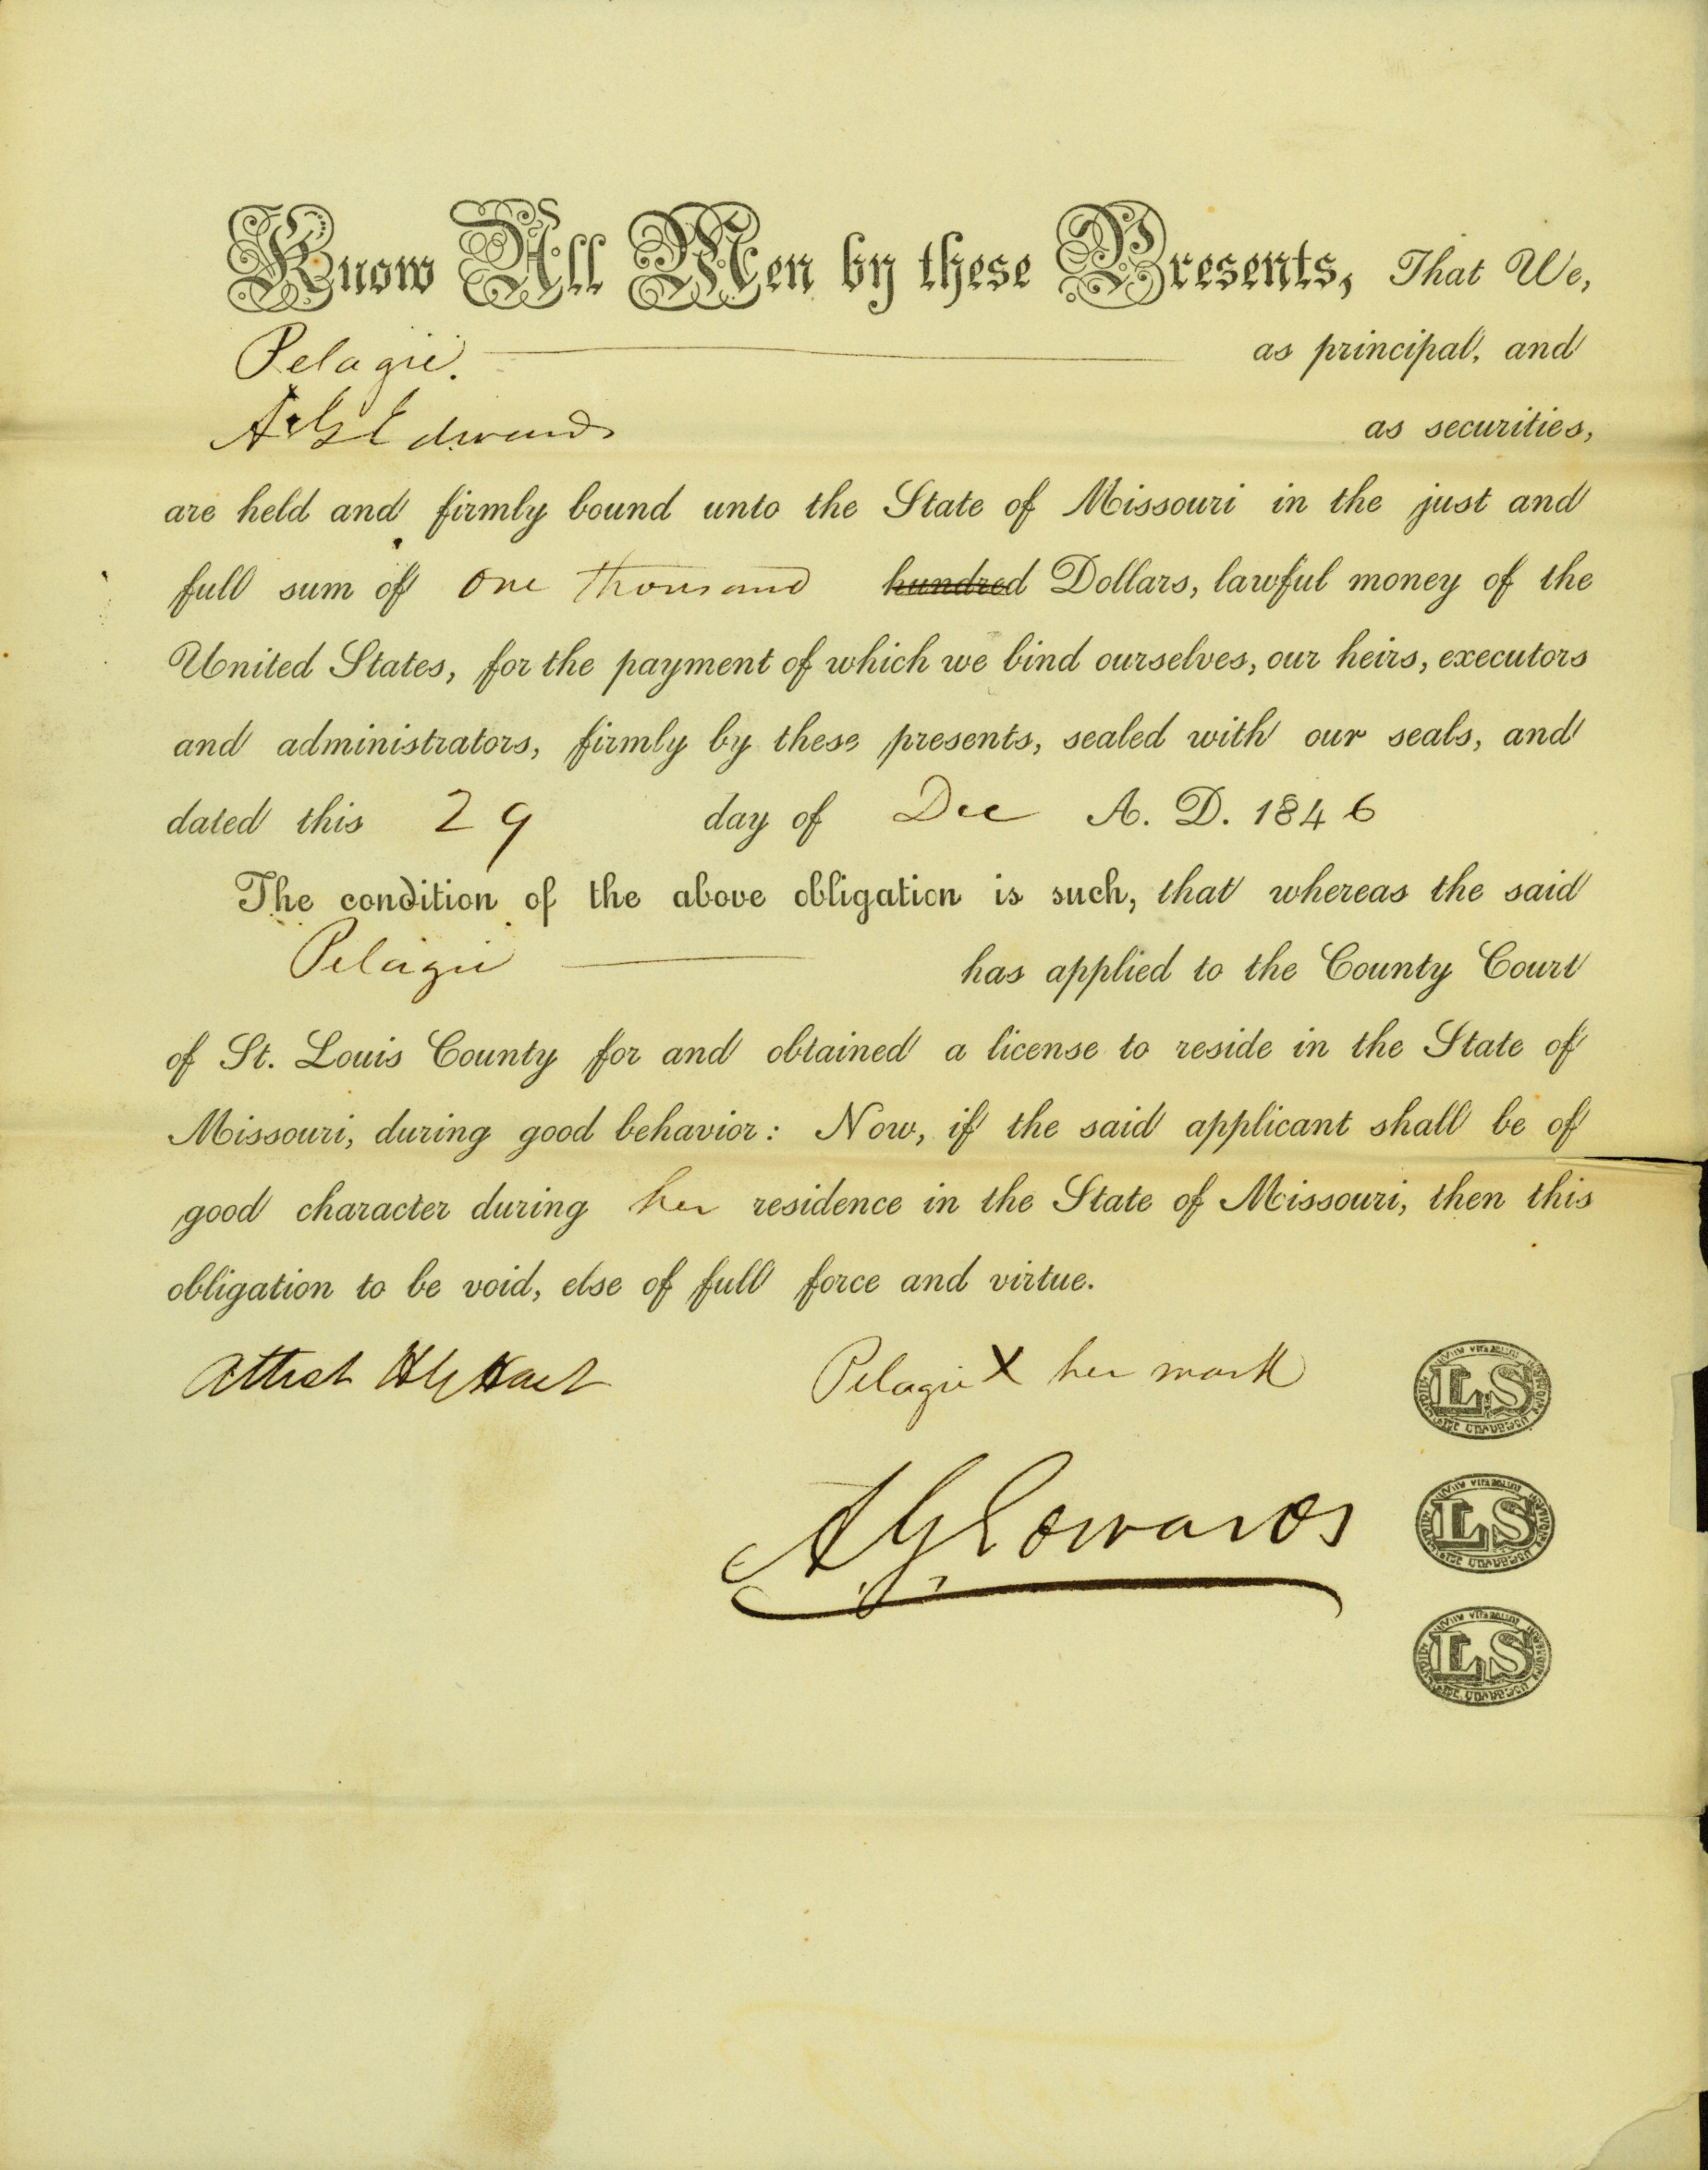 Know All Men by these Presents, That We,
Pelagie. as principal, and
A. G. Edwards as securities,
are held and firmly bound unto the State of Missouri in the just and
full sum of One thousand hundred Dollars, lawful money of the
United States, for the payment of which we bind ourselves, our heirs, executors
and administrators, firmly by these presents, sealed with our seals, and
dated this 29 day of Dec A. D. 1846
The condition of the above obligation is such, that whereas the said
Pelagie has applied to the County Court
of St. Louis County for and obtained a license to reside in the State of
Missouri, during good behavior: Now, if the said applicant shall be of
good character during her residence in the State of Missouri, then this
obligation to be void, else of full force and virtue.
Attest Pelagie X her mark
A G Edwards
LS
LS
LS